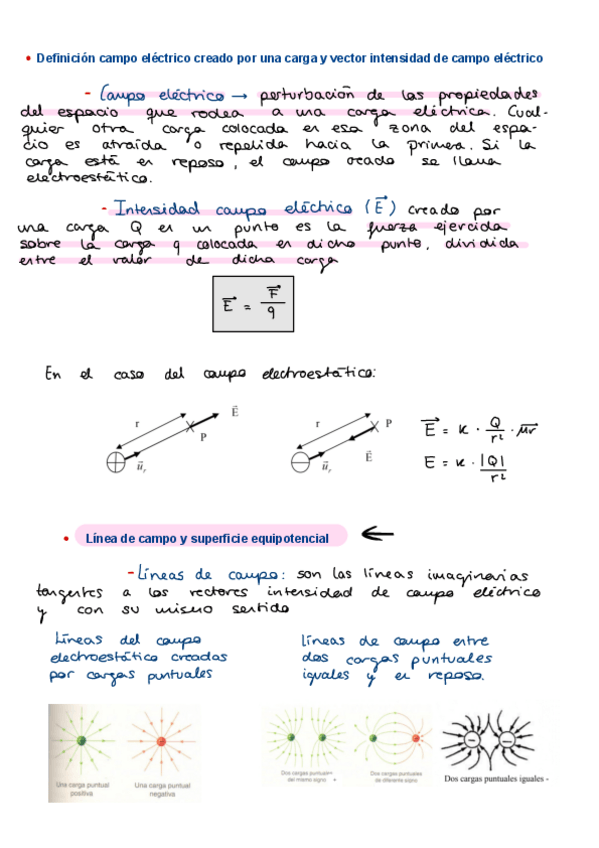 • Definición campo eléctrico creado por una carga y vector intensidad de campo eléctrico
- Campo eléctrico → perturbación de las propiedades
del espacio que rodea a una carga eléctrica. Cual-
quier otra carga colocada en esa zona del espa-
cio es atraída o repelida hacia la primera. Si la
carga está en reposo, el campo creado se llama
electroestático.
- Intensidad campo eléctrico (E⃗) creado por
una carga Q en un punto es la fuerza ejercida
sobre la carga q colocada en dicho punto, dividida
entre el valor de dicha carga
E⃗ = F⃗/q
En el caso del campo electroestático:
r P E⃗ u⃗r
r P E⃗ u⃗r
E⃗ = K · Q/r² · μ⃗r
E = K · |Q|/r²
• Línea de campo y superficie equipotencial ←
- Líneas de campo: son las líneas imaginarias
tangentes a los vectores intensidad de campo eléctrico
y con su mismo sentido
Líneas del campo
electroestático creadas
por cargas puntuales
líneas de campo entre
dos cargas puntuales
iguales y en reposo.
Una carga puntual
positiva
Una carga puntual
negativa
Dos cargas puntuales
del mismo signo +
Dos cargas puntuales
de diferente signo
Dos cargas puntuales iguales -